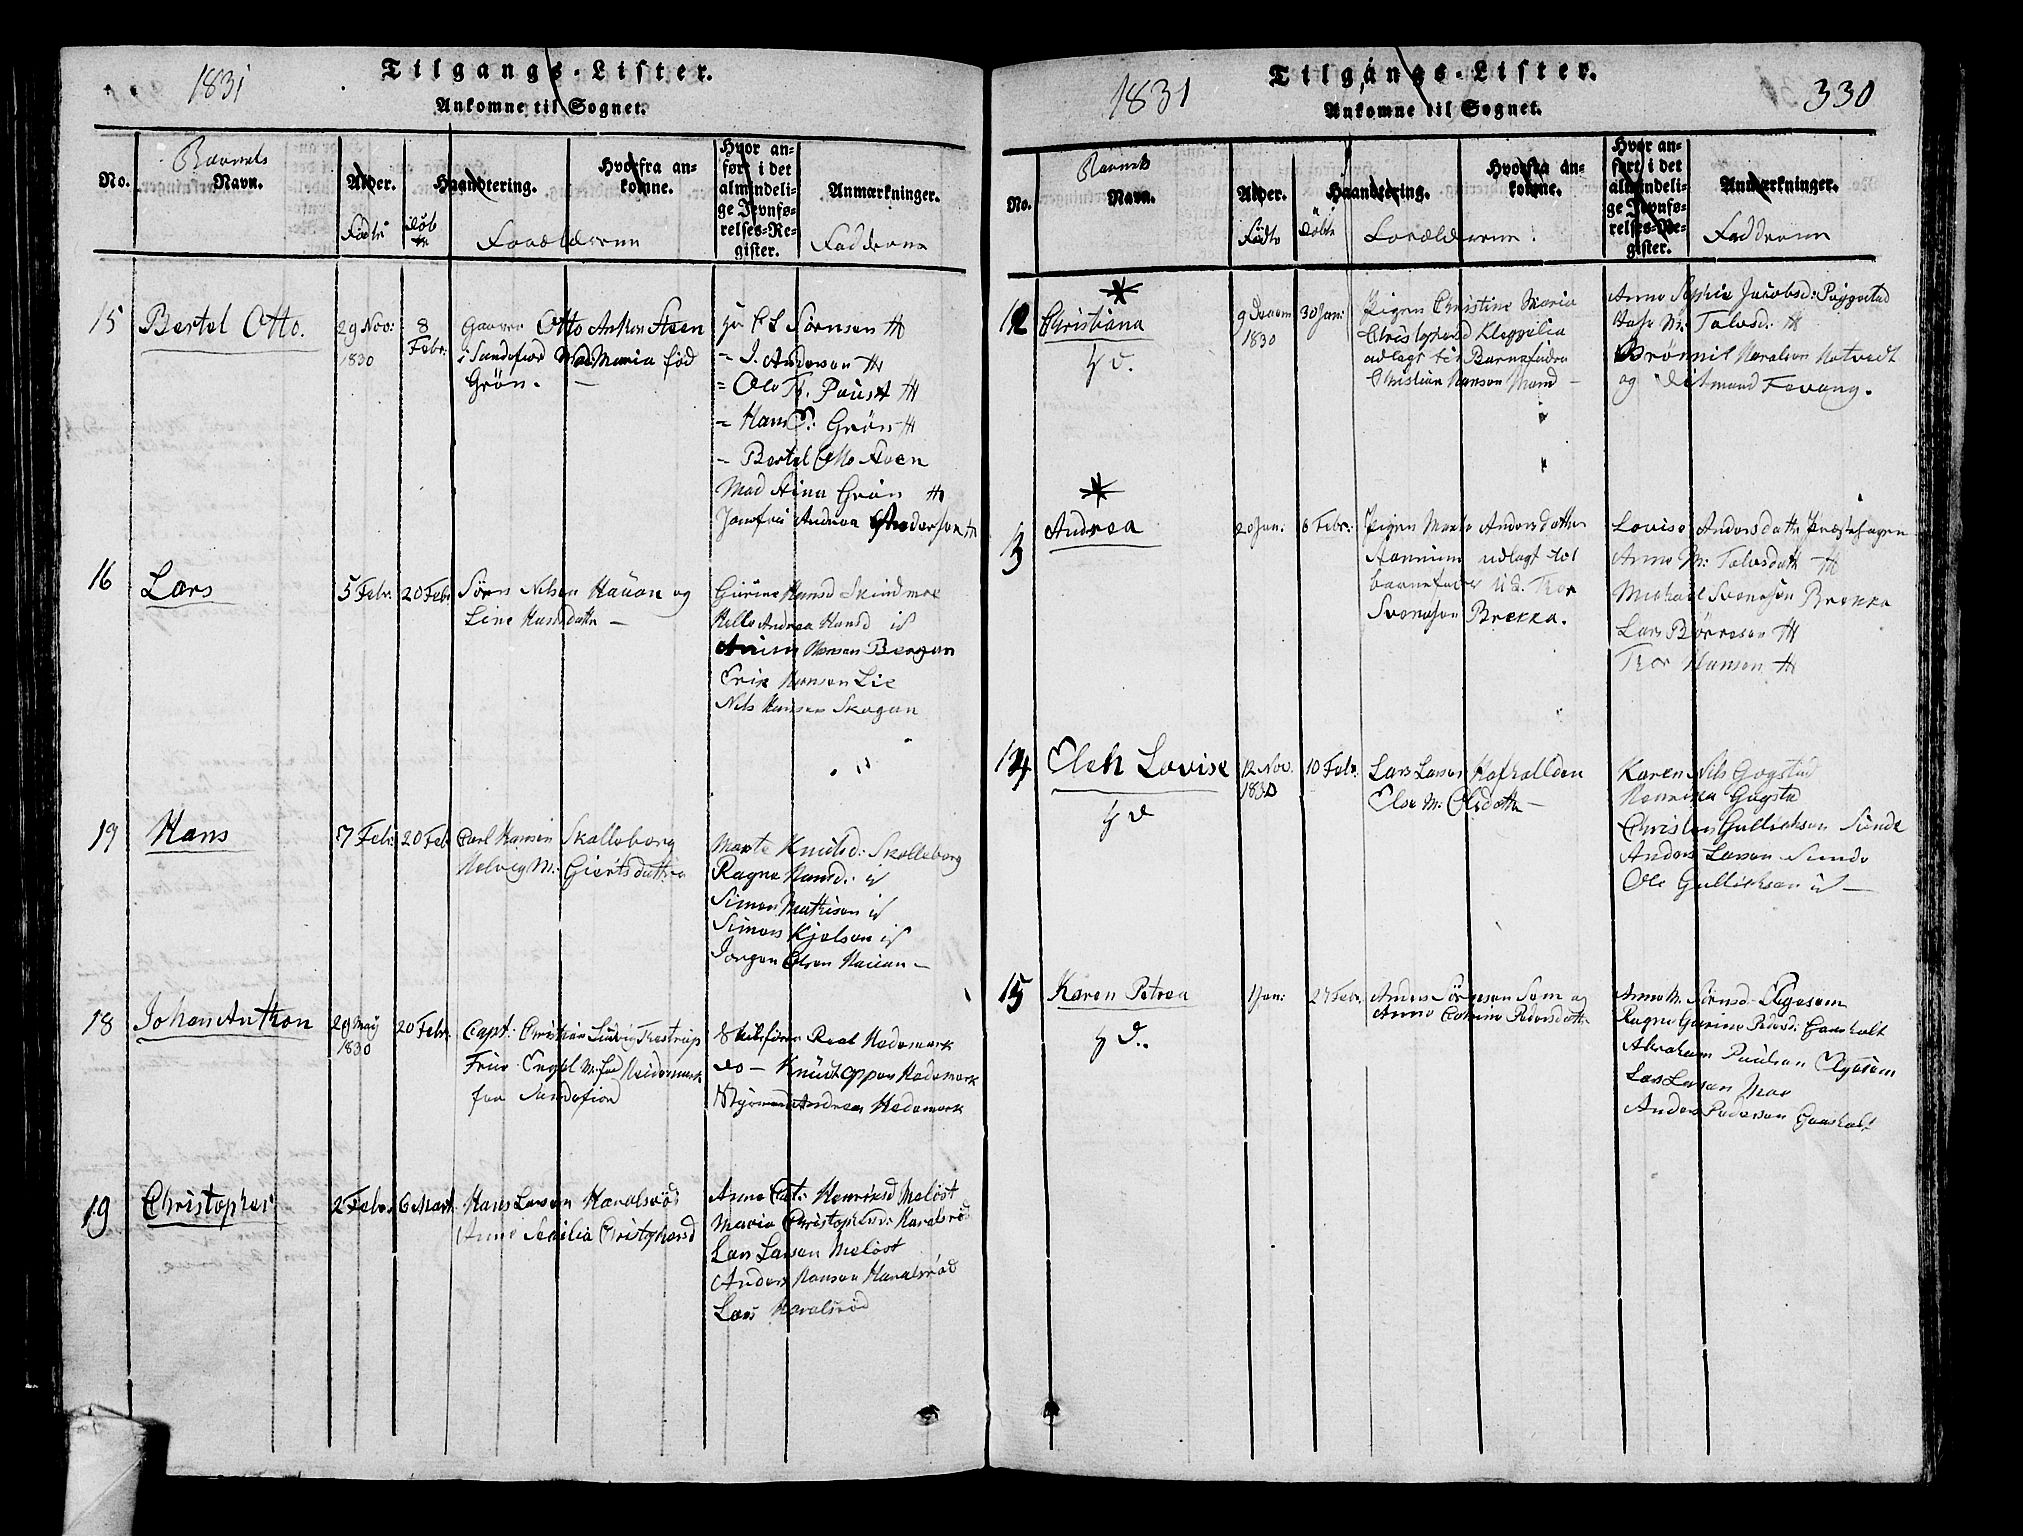 1831
Tilgangs-Lister.
Ankomne til Sognet.
No.
Barnets
Navn.
Alder.
Födte
Döbte
Haandtering.
Hvorfra an-
komne.
Forældrene
Hvor an-
ført i det
almindeli-
ge Jevnfø-
relses-Re-
gister.
Anmærkninger.
Faddrene
15
Bertel Otto.
29 Nov:
1830
8
Febr:
Otto Anthon Steen
i Sandefiord Mad: Maria fød
Grön.
Hr C S Sörnsen
- I. Anderson
= Ole Th. Paust
- Hans C: Grön
- Bertel Otto Steen
Mad Stina Grön
Jomfru Andrea Anderson
16
Lars
5 Febr.
20 Febr
Sören Nelsen Haüan og
Line Hansdattr
Gürine Hansd
Helle Andrea Hansd id
Hansen Bergan
Erik Hansen Lie
Nils Hansen Skogan
19
Hans
7 Feb:
20 Feb
Carl Hansen Skalleborg
Helvig M: Giertsdattr
Marte Knudsd: Skalleborg
Ragne Hansd: id
Simon Mathisen id
Simon Kjelsen id
Jörgen Olsen Hauan
18
Johan Anthon
29 May
1830
20 Febr.
Capt: Christian Ludvig Trestrup
Frue Engel M. fød Heidemark
fra Sandefiord
Skibsförer Roal Hedemark
do - Knud Hedemark
Andrea Hedemark
19
Christopher
2 Febr.
6 Mart
Hans Larsen Haralsröd
Anne Sesilia Christophersd
Anne Cat: Henriksd Meløst
Maria Christophersd: Haralsröd
Lars Larsen Meløst
Anders Hansen Haralsröd
Lars Haralsröd
1831
Tilgangs-Lister.
330
Ankomne til Sognet.
No.
Barnets
Navn.
Alder.
Födte
Döbte
Haandtering.
Hvorfra an-
komne.
Forældrene.
Hvor an-
ført i det
almindeli-
ge Jevnfø-
relses-Re-
gister.
Anmærkninger.
Faddrene
12
Christiana
9 Decem
1830
30 Jan:
Pigen Christine Maria
Christophersd
udlagt til Barnefader
Christian Hansen
Anne Sophie Jacobsd:
M: Talesd:
Haralsen Hotvedt
og Ditmand Fevang.
13
Andrea
20 Jan:
6 Febr:
Pigen Maria Andersdatter
udlagt til
barnefader U. S. Thor
Svensøn Brekka.
Lovise Andersdattr Præstehagen
Anne M: Talesdattr
Michael Svensøn Brekka
Lars Börresen
Thor Hansen
14
Eleh Lovise
12 Nov.
1830
10 Febr.
Lars Larsen Kafhallden
Else M: Olsdattr
Karen Nils Gogstad
Gogstad
Christen Gullichsen Sunde
Anders Larsen Sunde
Ole Gullichsen id
15
Karen Petrea
1 Jan:
27 Febr.
Anders Sörensen Sem og
Anne Pedersdattr
Anne M. Sörnsd Elgesem
Ragne Gurine Pedersd: Gaasholt
Abraham Paulsen Elgesem
Lars Larsen Moe
Anders Pedersen Gaasholt